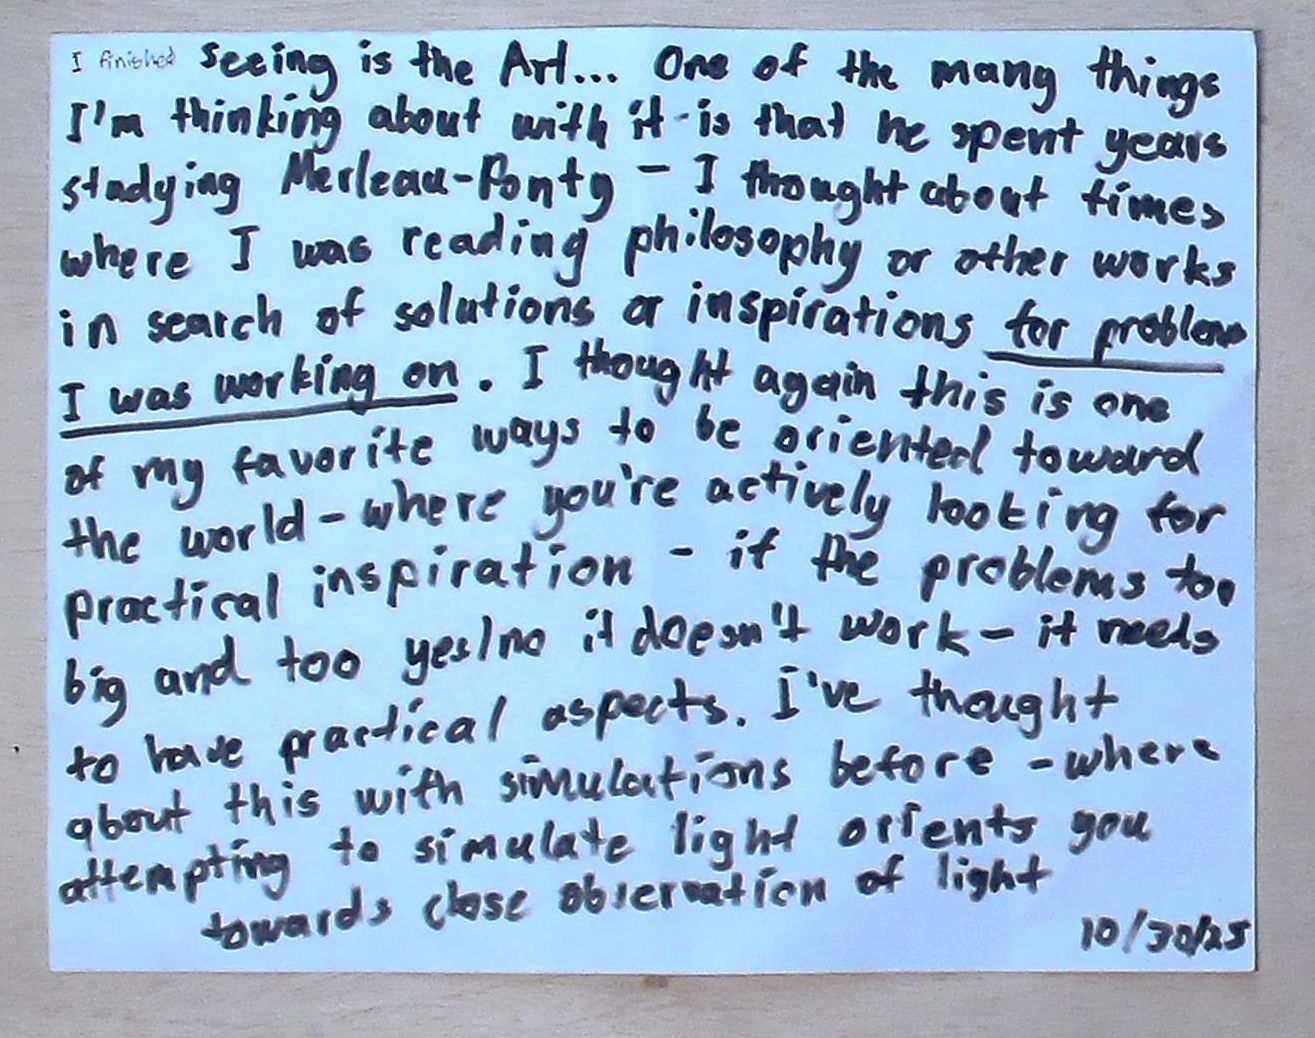 I finished Seeing is the Art... One of the many things
I'm thinking about with it is that he spent years
studying Merleau-Ponty - I thought about times
where I was reading philosophy or other works
in search of solutions or inspirations for problems
I was working on. I thought again this is one
of my favorite ways to be oriented toward
the world - where you're actively looking for
practical inspiration - if the problems too
big and too yes/no it doesn't work - it needs
to have practical aspects. I've thought
about this with simulations before - where
attempting to simulate light orients you
towards close observation of light
10/30/25